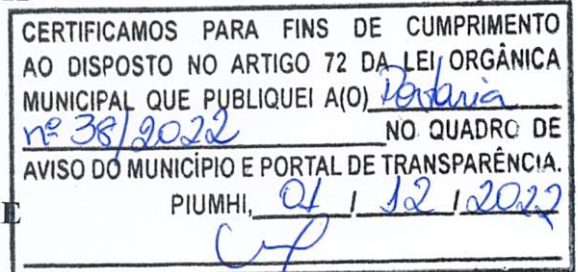 CERTIFICAMOS PARA FINS DE CUMPRIMENTO
AO DISPOSTO NO ARTIGO 72 DA LEI ORGÂNICA
MUNICIPAL QUE PUBLIQUEI A(O) Portaria
nº 38/2022 NO QUADRO DE
AVISO DO MUNICÍPIO E PORTAL DE TRANSPARÊNCIA.
E PIUMHI, 01 / 12 / 2022